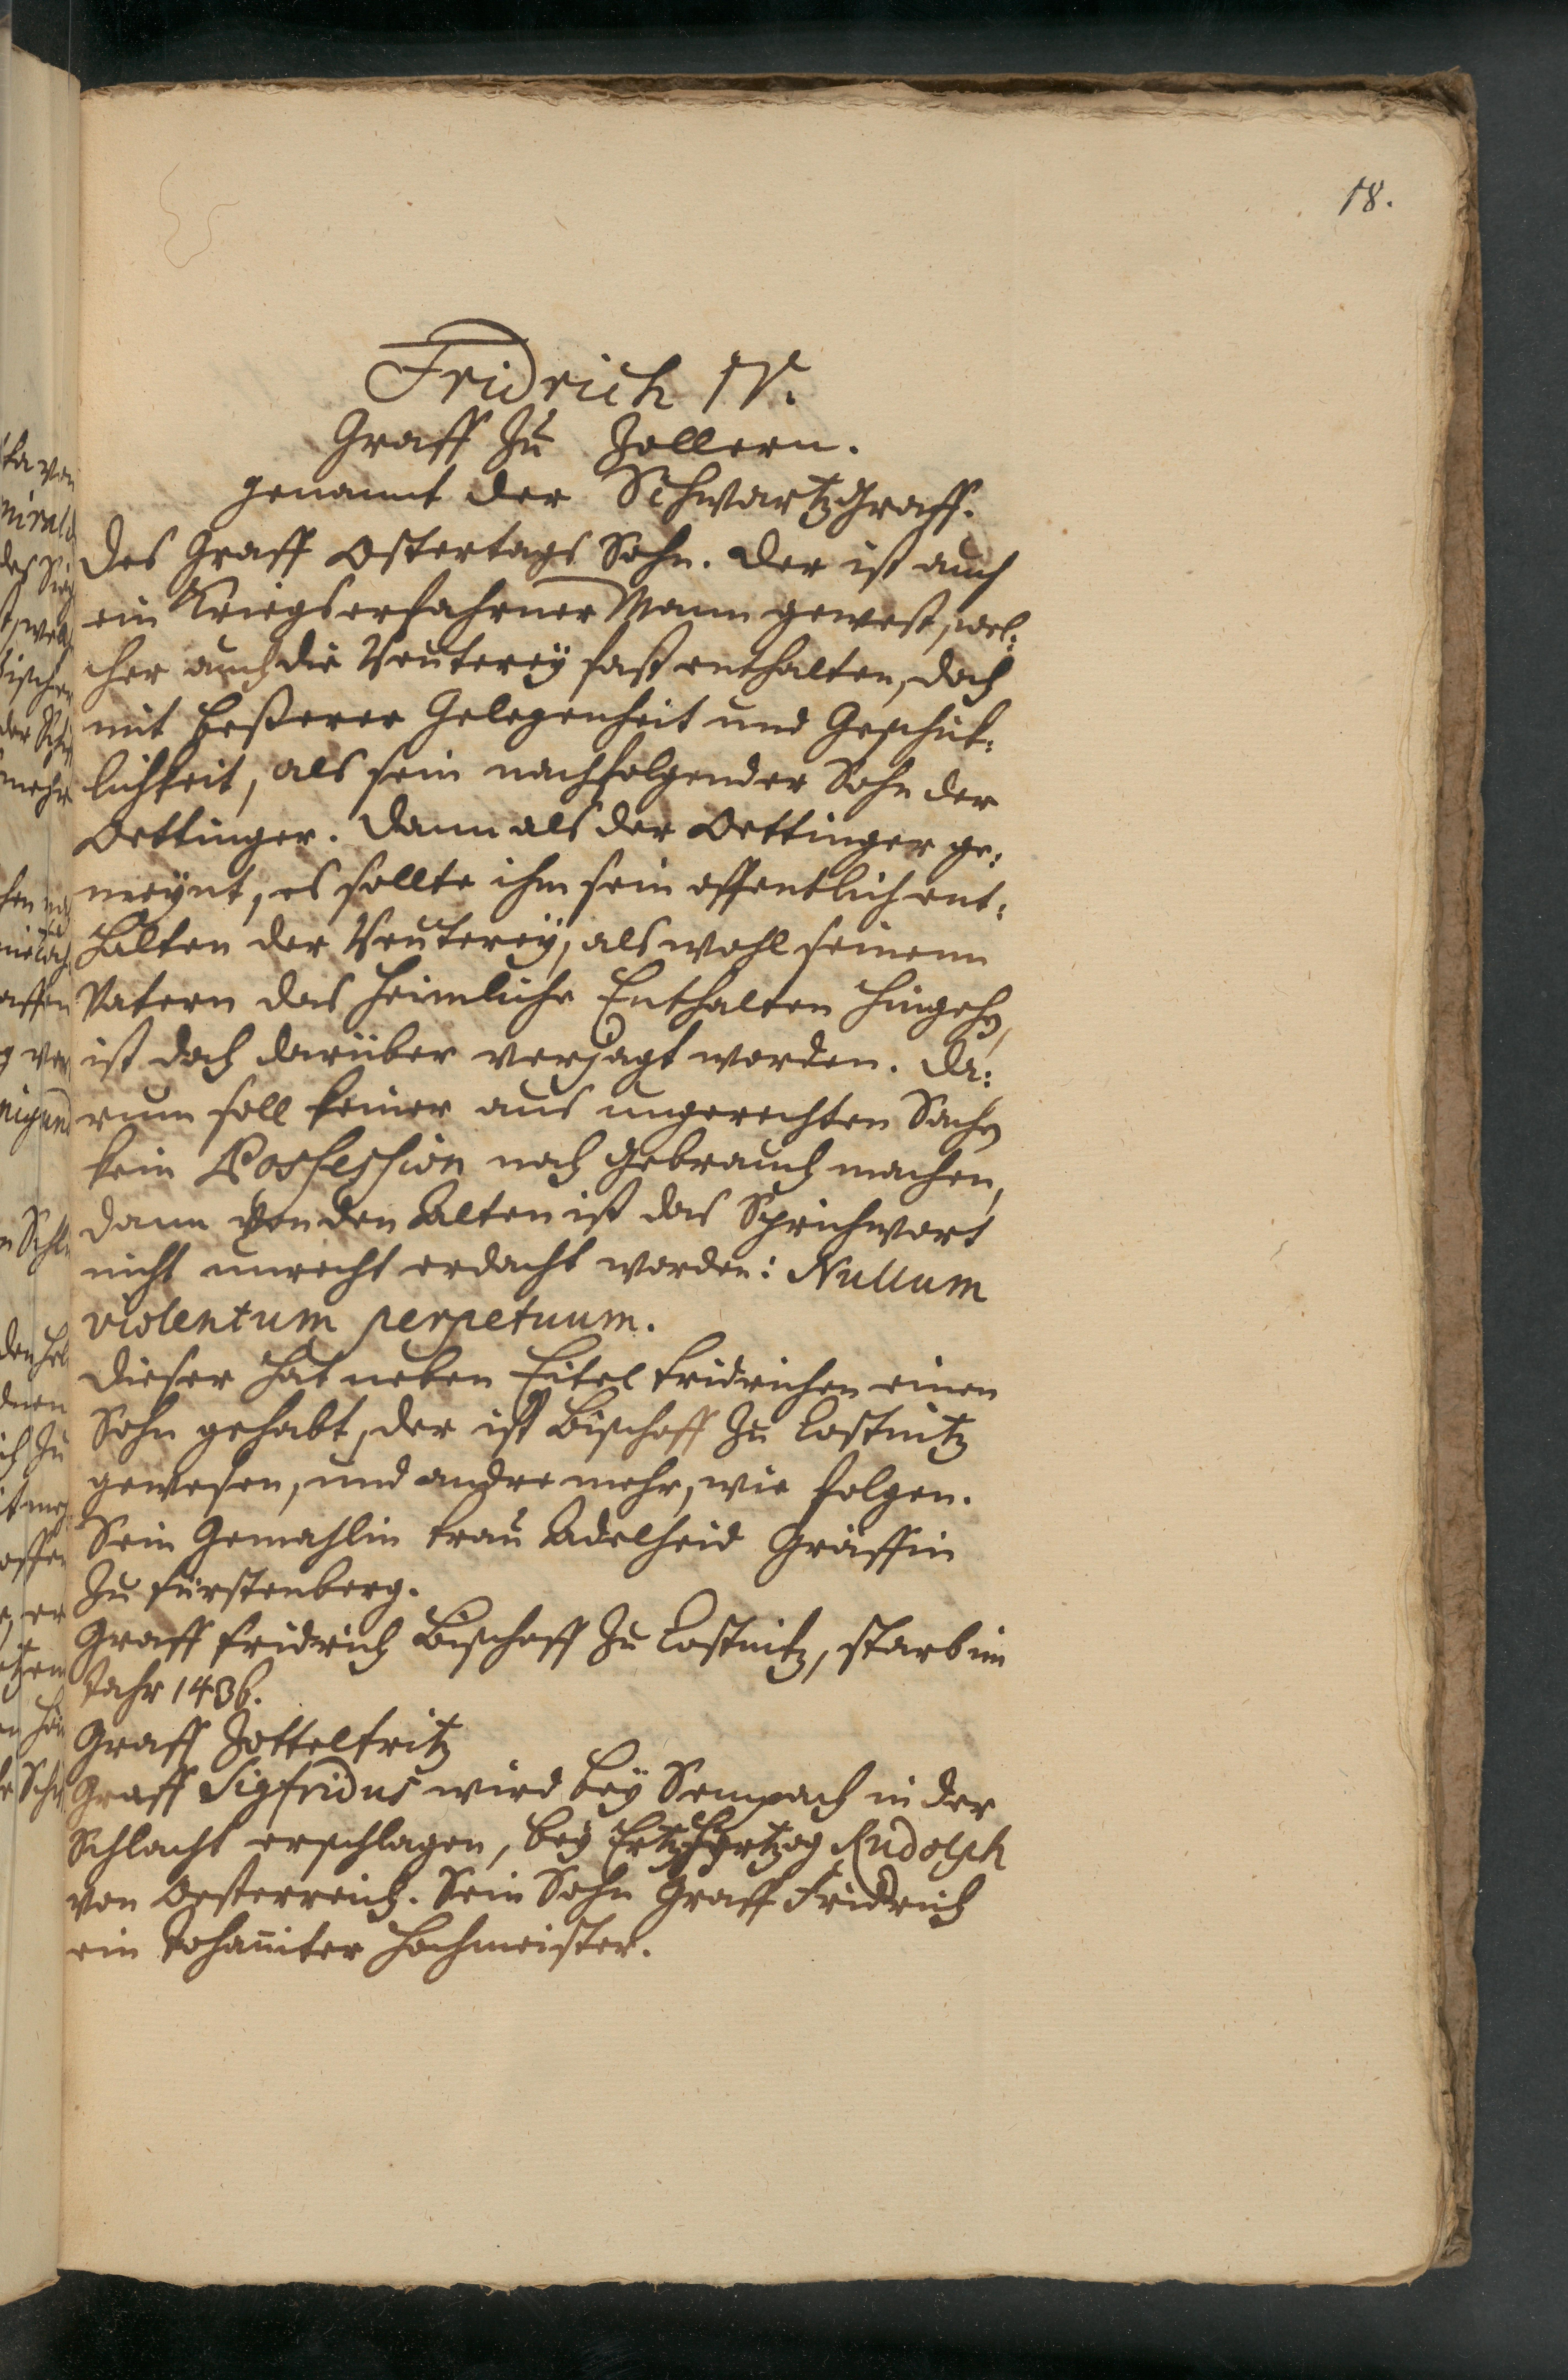 18.
Fridrich IV.
Graff zu Zollern.
genannt der SchwartzGraff.
Des Graff Ostertags Sohn. Der ist auch
ein Kriegserfahrner Mann gewest, wel:
cher auch die Reuterey fast enthalten, doch
mit beßerer Gelegenheit und Geschick:
lichkeit, als sein nachfolgender Sohn der
Oettinger. Dann als der Oettinger ge:
meynt, es sollte ihm sein offentlich ent:
halten der Reuterey, als wohl seinem
Vatern das heimliche Enthalten hingehen,
ist doch darüber verjagt worden. Da:
rum soll keiner aus ungerechten Sachen
kein Possession noch Gebrauch machen,
dann von den Alten ist das Sprichwort
nicht unrecht erdacht worden: Nullum
violentum perpetuum.
Dieser hat neben Eitel Fridrichen einen
Sohn gehabt, der ist Bischoff zu Costnitz
gewesen, und andre mehr, wie folgen.
Sein Gemahlin Frau Adelheid Gräffin
zu Fürstenberg.
Graff Fridrich Bischoff zu Costnitz, starb im
Jahr 1436.
Graff Zottelfritz
Graff Sigfridus wird bey Sempach in der
Schlacht erschlagen, bey Ertzhertzog Rudolph
von Oesterreich. Sein Sohn Graff Fridrich
ein Johanniter Hochmeister.